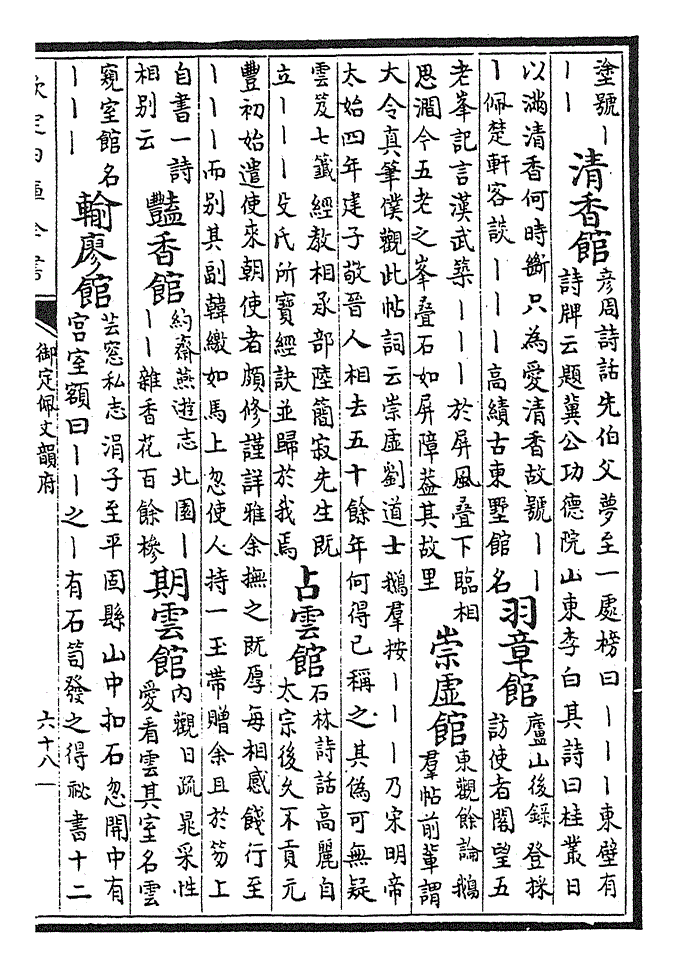 塗號丨
丨丨
清香館
彦周詩話先伯父夢至一處榜曰丨丨丨東壁有
詩牌云題冀公功德院山東李白其詩曰桂叢日
以滿清香何時斷只為愛清香故號丨丨
丨佩楚軒客談丨丨丨高續古東墅館名
羽章館
廬山後錄登採
訪使者閣望五
老峯記言漢武築丨丨丨於屏風疊下臨相
思澗今五老之峯疊石如屏障葢其故里
崇虚館
東觀餘論鵝
羣帖前輩謂
大令真筆僕觀此帖詞云崇虚劉道士鵝羣按丨丨丨乃宋明帝
太始四年建子敬晉人相去五十餘年何得已稱之其偽可無疑
雲笈七籤經教相承部陸簡寂先生既
立丨丨丨殳氏所寶經訣並歸於我焉
占雲館
石林詩話高麗自
太宗後久不貢元
豐初始遣使來朝使者頗修謹詳雅余撫之既厚每相感餞行至
丨丨丨而别其副韓繳如馬上忽使人持一玉帶贈余且於笏上
自書一詩
相别云
豔香館
約齋燕遊志北園丨
丨丨雜香花百餘槮
期雲館
内觀日疏晁采性
愛看雲其室名雲
窺室館名
丨丨丨
輸廖館
芸窓私志涓子至平固縣山中扣石忽開中有
宫室額曰丨丨之丨有石笥發之得祕書十二
欽定四庫全書
御定佩文韻府
六十八